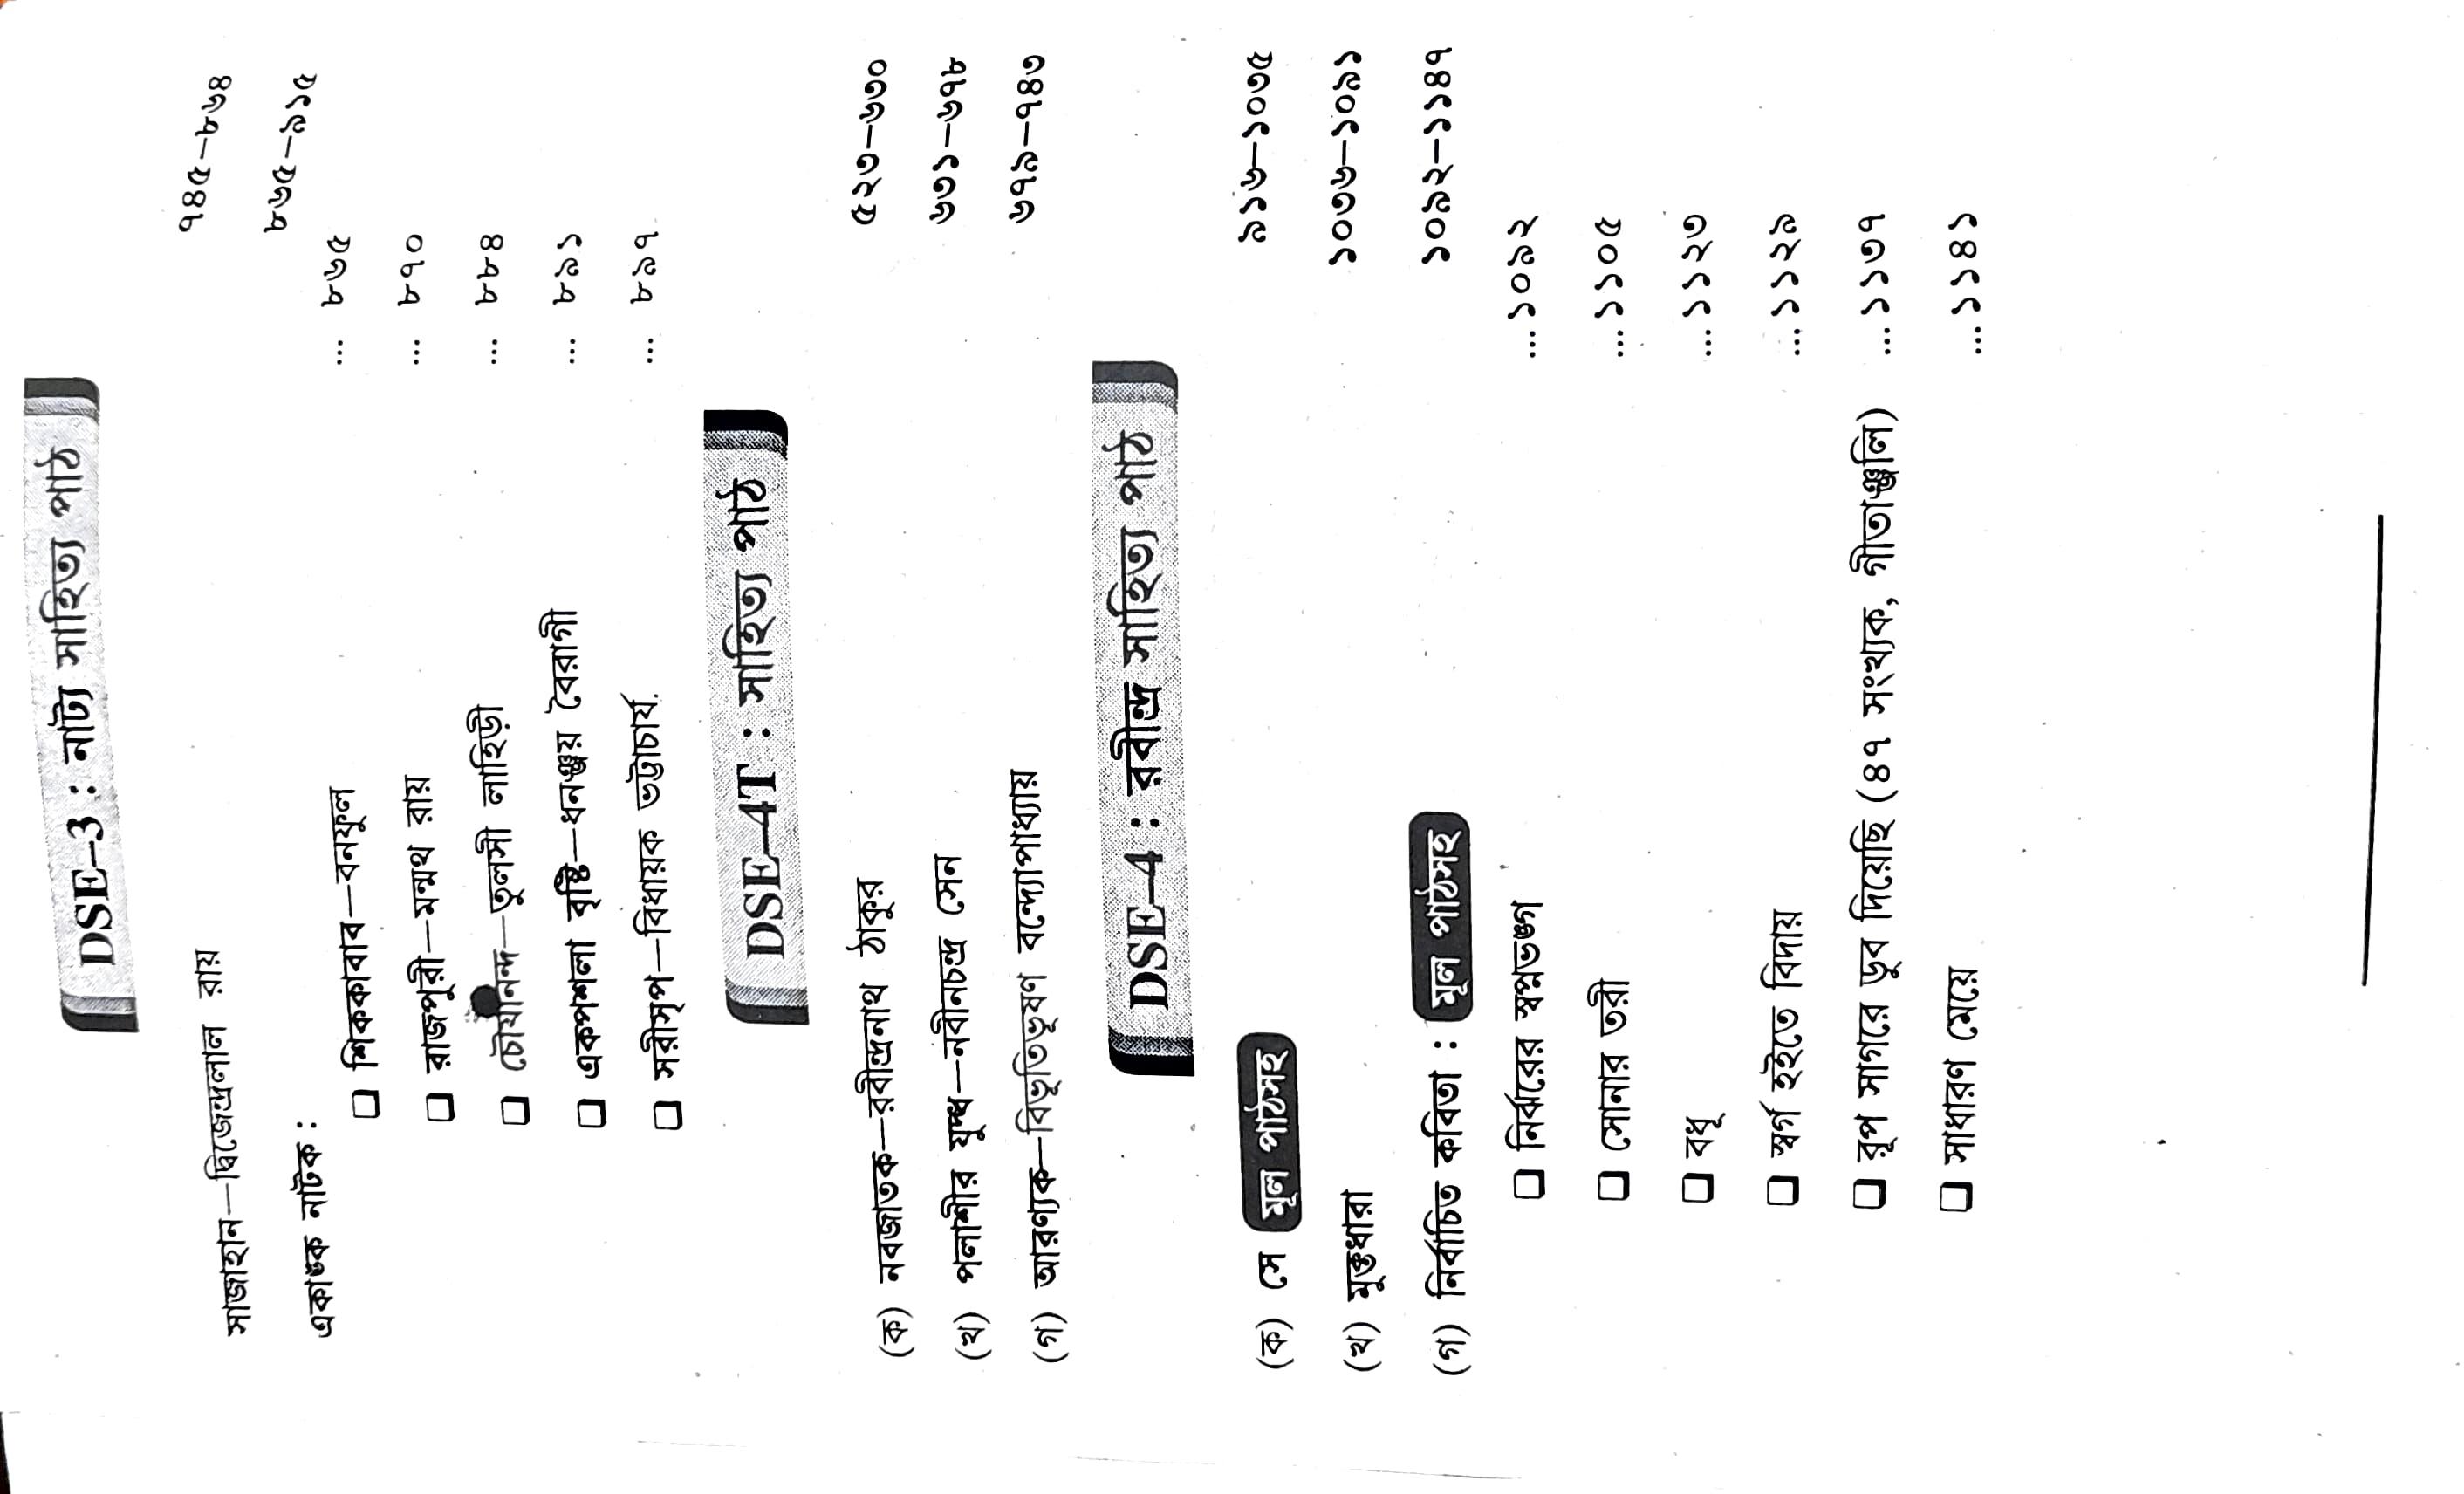 DSE–3 : নাট্য সাহিত্য পাঠ
সাজাহান—দ্বিজেন্দ্রলাল রায় ৭৪৫–৮৬৪
একাঙ্ক নাটক : ৮৬৫–৯১৫
❑ শিককাবাব—বনফুল ... ৮৬৫
❑ রাজপুরী—মন্মথ রায় ... ৮৭০
❑ চৌর্যানন্দ—তুলসী লাহিড়ী ... ৮৮৪
❑ একপশলা বৃষ্টি—ধনঞ্জয় বৈরাগী ... ৮৯১
❑ সরীসৃপ—বিধায়ক ভট্টাচার্য. ... ৮৯৭
DSE–4T : সাহিত্য পাঠ
(ক) নবজাতক—রবীন্দ্রনাথ ঠাকুর ৫২৩–৬৩০
(খ) পলাশীর যুদ্ধ—নবীনচন্দ্র সেন ৬৩১–৬৭৮
(গ) আরণ্যক—বিভূতিভূষণ বন্দ্যোপাধ্যায় ৬৭৯–৭৪৩
DSE–4 : রবীন্দ্র সাহিত্য পাঠ
(ক) সে মূল পাঠসহ ৯১৬–১০৩৫
(খ) মুক্তধারা ১০৩৬–১০৯১
(গ) নির্বাচিত কবিতা : মূল পাঠসহ ১০৯২–১১৪৭
❑ নির্ঝরের স্বপ্নভঙ্গ ... ১০৯২
❑ সোনার তরী ... ১১০৫
❑ বধূ ... ১১২৩
❑ স্বর্গ হইতে বিদায় ... ১১২৯
❑ রূপ সাগরে ডুব দিয়েছি (৪৭ সংখ্যক, গীতাঞ্জলি) ... ১১৩৭
❑ সাধারণ মেয়ে ... ১১৪১